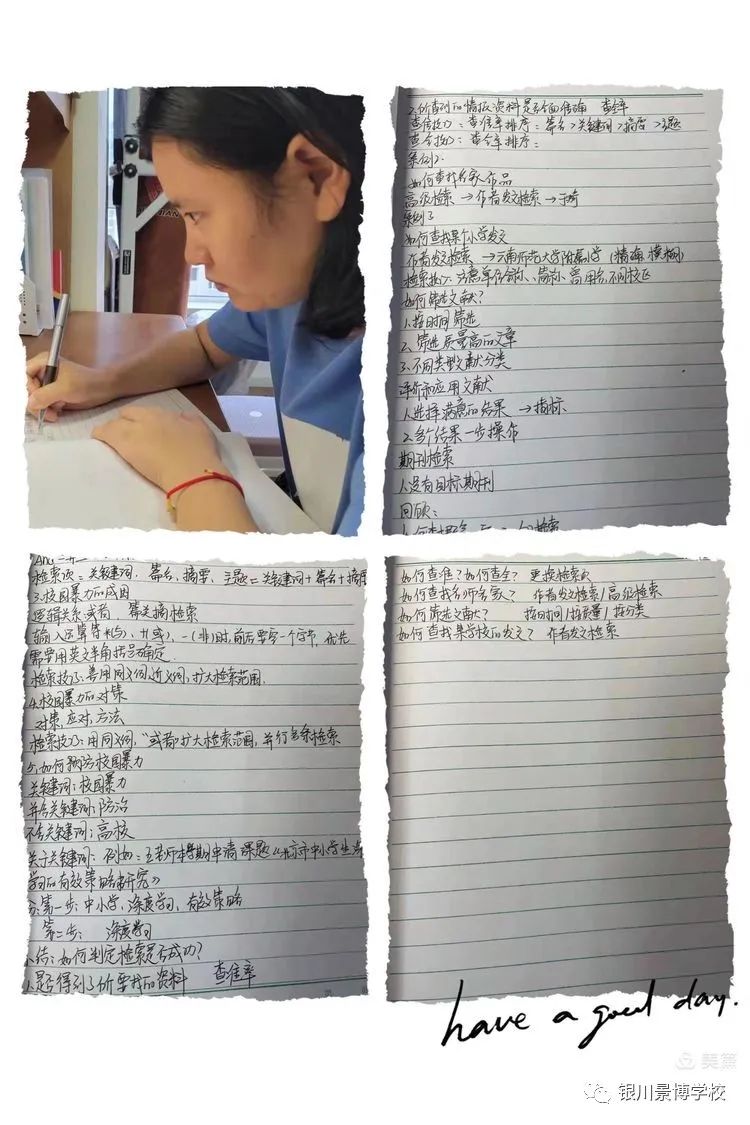 2.所查到的情报资料是否全面准确 查全率
查准技巧：查准率排序：篇名>关键词>摘要>主题
查全技巧：查全率排序：
案例2.
如何查找名家作品
高级检索→作者发文检索→于漪
案例3
如何查找某个小学发文
作者发文检索→云南师范大学附属小学（精确、模糊）
检索技巧：注意单位全称、简称、曾用名、不同校区
如何筛选文献？
1.按时间筛选
2.筛选质量高的文章
3.不同类型文献分类
评价和应用文献
1.选择满意的结果→指标
2.多个结果一步操作
期刊检索
1.没有目标期刊
回顾：
检索项=关键词、篇名、摘要、主题=关键词+篇名+摘要
3.校园暴力的成因
逻辑关系：或者 篇关摘检索
输入运算符*(与)、+(或)、-(非)时，前后要空一个字节，优先
需要用英文半角括号确定.
检索技巧：善用同义词，近义词，扩大检索范围.
4.校园暴力的对策
对策，应对，方法
检索技巧：用同义词，“或者”扩大检索范围，并行多条检索
5.如何预防校园暴力
关键词：校园暴力
并含关键词：防治
不含关键词：高校
关于关键词：例如：王老师本学期申请课题《北京市中小学生深度
学习的有效策略研究》
第一步：中小学，深度学习，有效策略
第二步：深度学习
小结：如何判定检索是否成功？
1.是否得到了所要找的资料 查准率
如何查准？如何查全？ 更换检索项
如何查找名师名家？ 作者发文检索/高级检索
如何筛选文献？ 按时间/按质量/按分类
如何查找某学校的发文？ 作者发文检索
have a good day.
美篇
银川景博学校